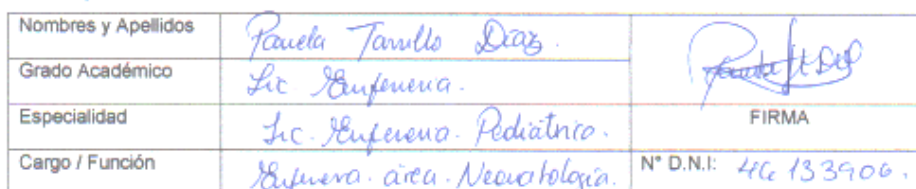 Nombres y Apellidos Pamela Tarrillo Díaz.
Grado Académico Lic Enfermería.
Especialidad Lic. Enfermería. Pediátrico.
FIRMA
Cargo / Función Enfermera. área. Neonatología.
N° D.N.I: 46133906.